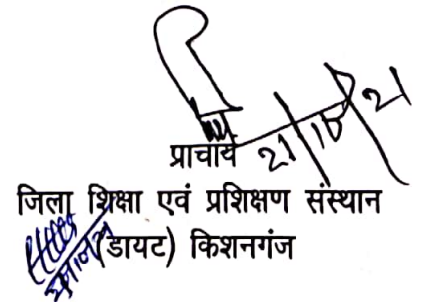 प्राचार्य 21/10/21
जिला शिक्षा एवं प्रशिक्षण संस्थान
(डायट) किशनगंज